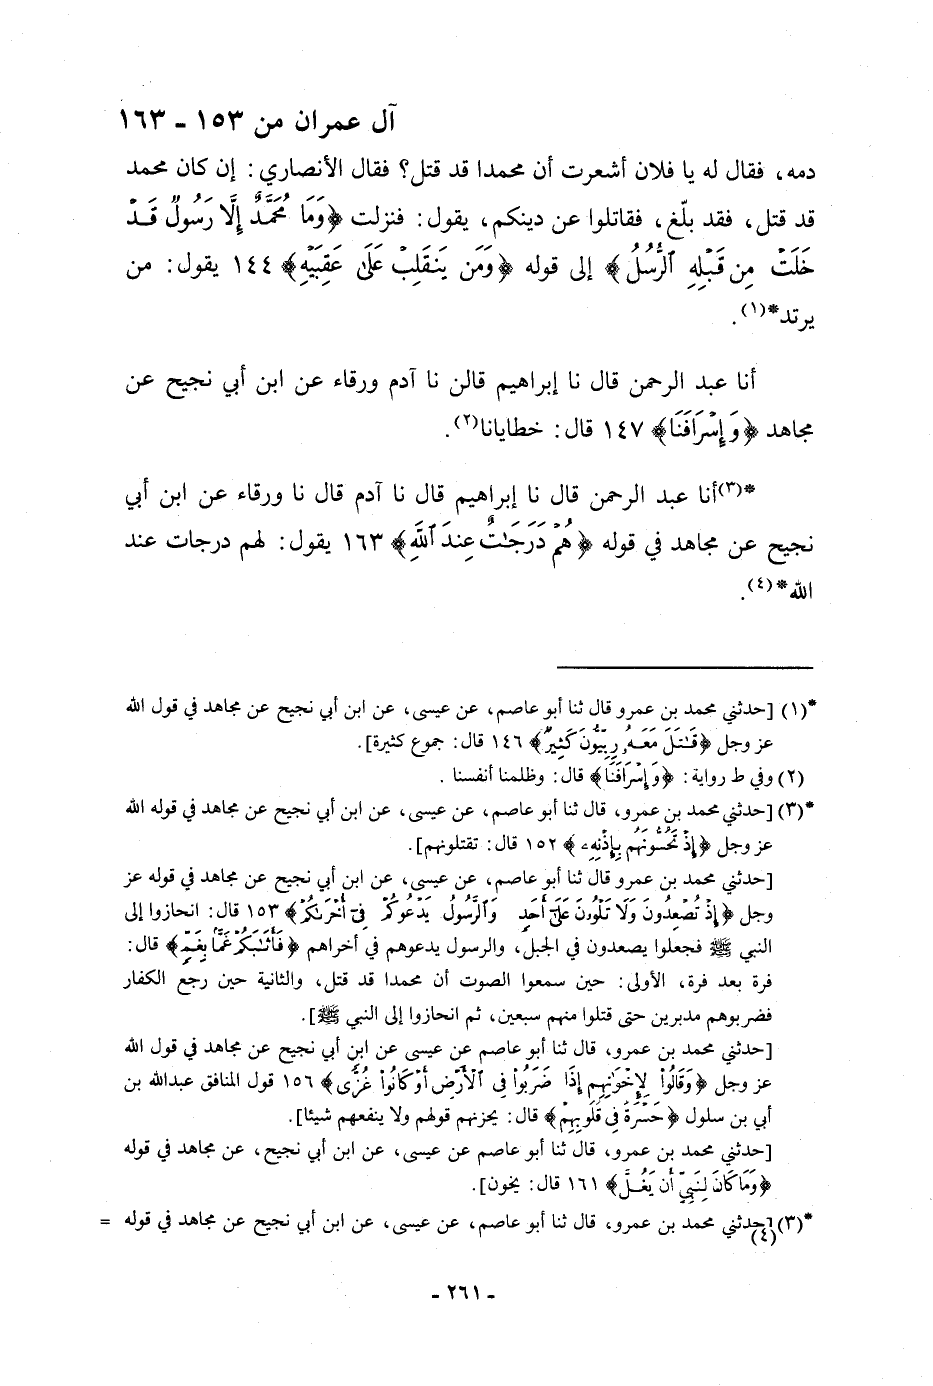 آل عمران من ١٥٣ ـ ١٦٣
دمه، فقال له يا فلان أشعرت أن محمدا قد قتل؟ فقال الأنصاري: إن كان محمد
قد قتل، فقد بلّغ، فقاتلوا عن دينكم، يقول: فنزلت ﴿وَمَا مُحَمَّدٌ إِلَّا رَسُولٌ قَدْ
خَلَتْ مِن قَبْلِهِ ٱلرُّسُلُ﴾ إلى قوله ﴿وَمَن يَنقَلِبْ عَلَىٰ عَقِبَيْهِ﴾ ١٤٤ يقول: من
يرتد*(١).
أنا عبد الرحمن قال نا إبراهيم قالن نا آدم ورقاء عن ابن أبي نجيح عن
مجاهد ﴿وَإِسْرَافَنَا﴾ ١٤٧ قال: خطايانا(٢).
*(٣)أنا عبد الرحمن قال نا إبراهيم قال نا آدم قال نا ورقاء عن ابن أبي
نجيح عن مجاهد في قوله ﴿هُمْ دَرَجَـٰتٌ عِندَ ٱللَّهِ﴾ ١٦٣ يقول: لهم درجات عند
الله*(٤).
*(١) [حدثني محمد بن عمرو قال ثنا أبو عاصم، عن عيسى، عن ابن أبي نجيح عن مجاهد في قول الله
عز وجل ﴿قَـٰتَلَ مَعَهُۥ رِبِّيُّونَ كَثِيرٌ﴾ ١٤٦ قال: جموع كثيرة].
(٢) وفي ط رواية: ﴿وَإِسْرَافَنَا﴾ قال: وظلمنا أنفسنا .
*(٣) [حدثني محمد بن عمرو، قال ثنا أبو عاصم، عن عيسى، عن ابن أبي نجيح عن مجاهد في قوله الله
عز وجل ﴿إِذْ تَحُسُّونَهُم بِإِذْنِهِۦ﴾ ١٥٢ قال: تقتلونهم].
[حدثني محمد بن عمرو قال ثنا أبو عاصم، عن عيسى، عن ابن أبي نجيح عن مجاهد في قوله عز
وجل ﴿إِذْ تُصْعِدُونَ وَلَا تَلْوُۥنَ عَلَىٰٓ أَحَدٍ وَٱلرَّسُولُ يَدْعُوكُمْ فِىٓ أُخْرَىٰكُمْ﴾ ١٥٣ قال: انحازوا إلى
النبي ﷺ فجعلوا يصعدون في الجبل، والرسول يدعوهم في أخراهم ﴿فَأَثَـٰبَكُمْ غَمًّۢا بِغَمٍّ﴾ قال:
فرة بعد فرة، الأولى: حين سمعوا الصوت أن محمدا قد قتل، والثانية حين رجع الكفار
فضربوهم مدبرين حتى قتلوا منهم سبعين، ثم انحازوا إلى النبي ﷺ].
[حدثني محمد بن عمرو، قال ثنا أبو عاصم عن عيسى عن ابن أبي نجيح عن مجاهد في قول الله
عز وجل ﴿وَقَالُوا۟ لِإِخْوَٰنِهِمْ إِذَا ضَرَبُوا۟ فِى ٱلْأَرْضِ أَوْ كَانُوا۟ غُزًّى﴾ ١٥٦ قول المنافق عبدالله بن
أبي بن سلول ﴿حَسْرَةً فِى قُلُوبِهِمْ﴾ قال: يحزنهم قولهم ولا ينفعهم شيئا].
[حدثني محمد بن عمرو، قال ثنا أبو عاصم عن عيسى، عن ابن أبي نجيح، عن مجاهد في قوله
﴿وَمَا كَانَ لِنَبِىٍّ أَن يَغُلَّ﴾ ١٦١ قال: يخون].
*(٣) [حدثني محمد بن عمرو، قال ثنا أبو عاصم، عن عيسى، عن ابن أبي نجيح عن مجاهد في قوله =
(٤)
ـ ٢٦١ ـ